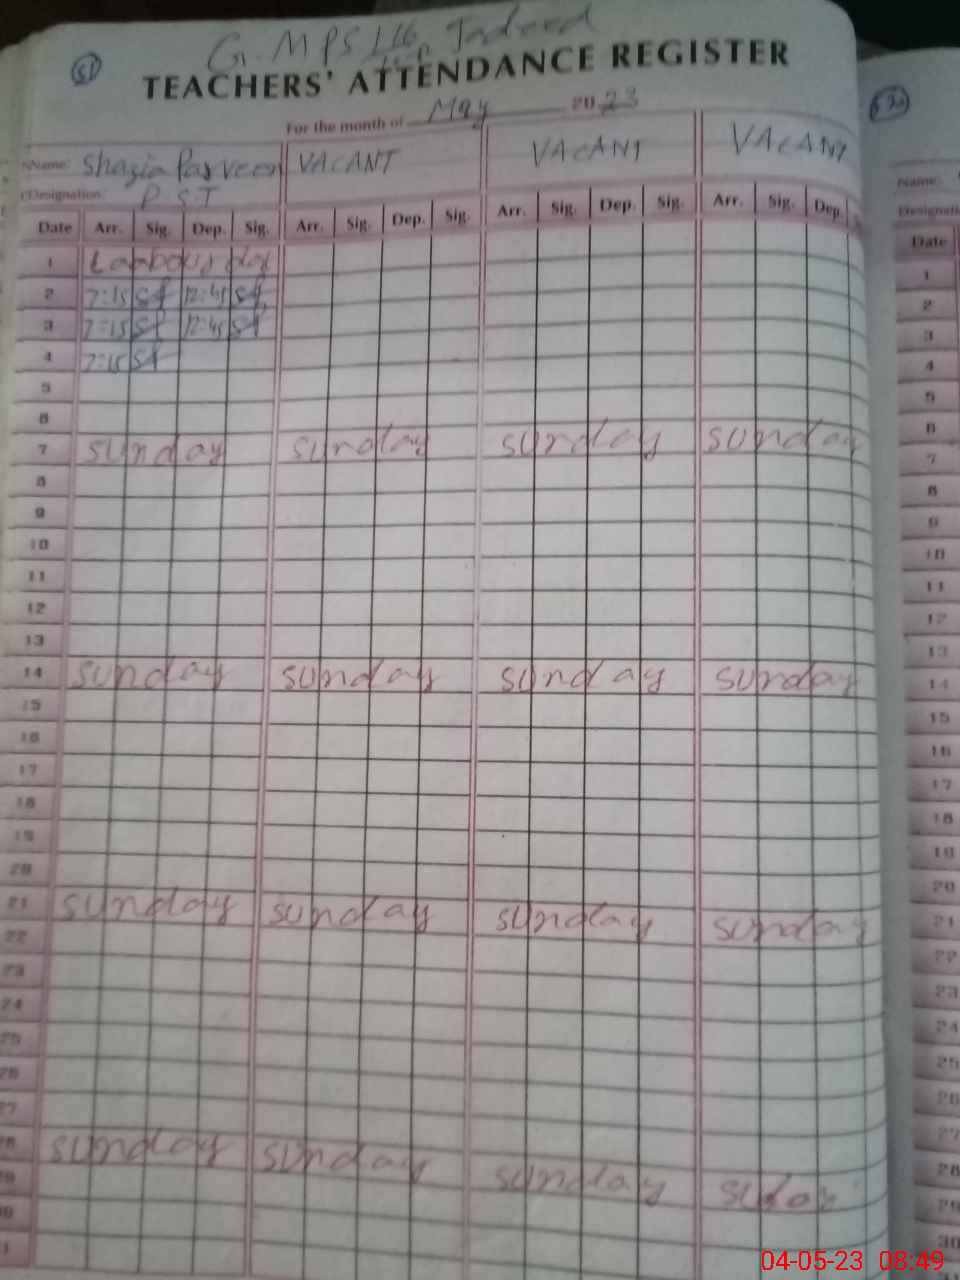 51
G. MPS 116
TEACHERS' ATTENDANCE REGISTER
For the month of May 2023
Name: Shazia Parveen VACANT VACANT VACANT
Designation: P.S.T
Date Arr. Sig. Dep. Sig. Arr. Sig. Dep. Sig. Arr. Sig. Dep. Sig. Arr. Sig. Dep.
1 Laabour day
2 7:15 12:45
3 7:15 12:45
4 7:15
5
6
7 Sunday Sunday Sunday Sunday
8
9
10
11
12
13
14 Sunday Sunday Sunday Sunday
15
16
17
18
19
20
21 Sunday Sunday Sunday Sunday
22
23
24
25
26
27
28 Sunday Sunday Sunday Suday
29
30
31
Name:
Date
1
2
3
4
5
6
7
8
9
10
11
12
13
14
15
16
17
18
19
20
21
22
23
24
25
26
27
28
29
30
04-05-23 08:49